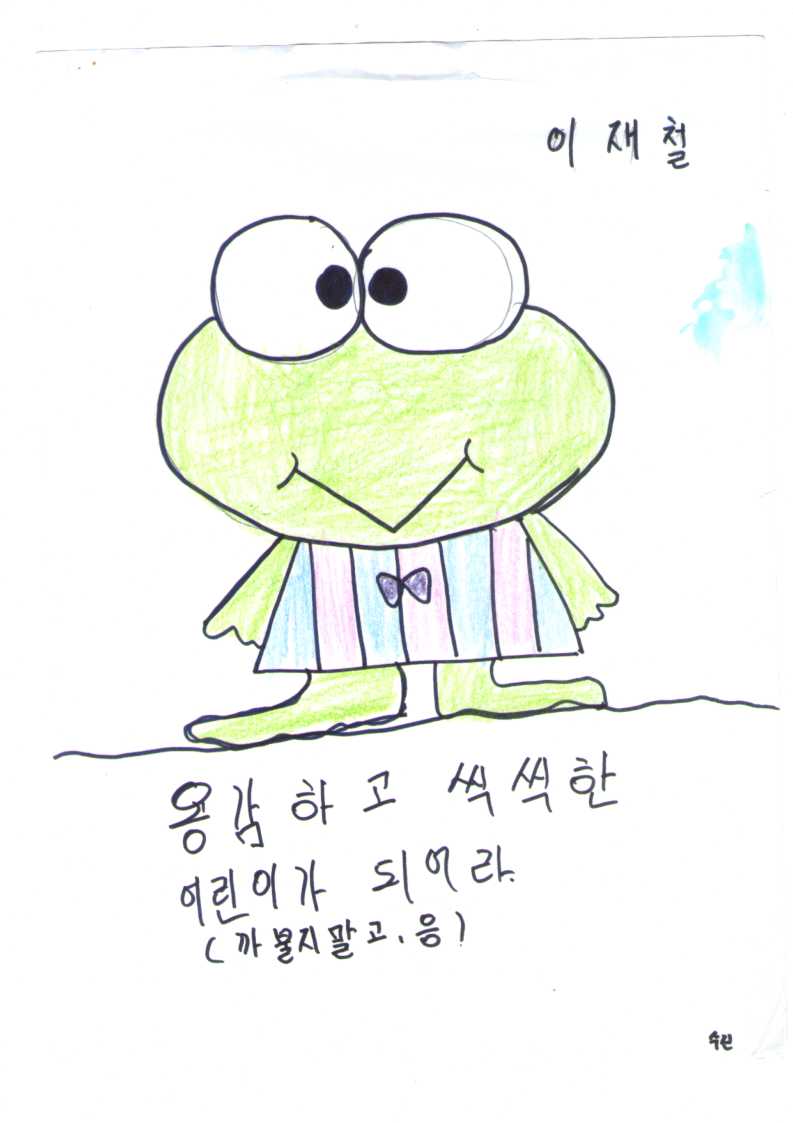 이재철
용감하고 씩씩한
어린이가 되어라.
(까불지말고, 응)